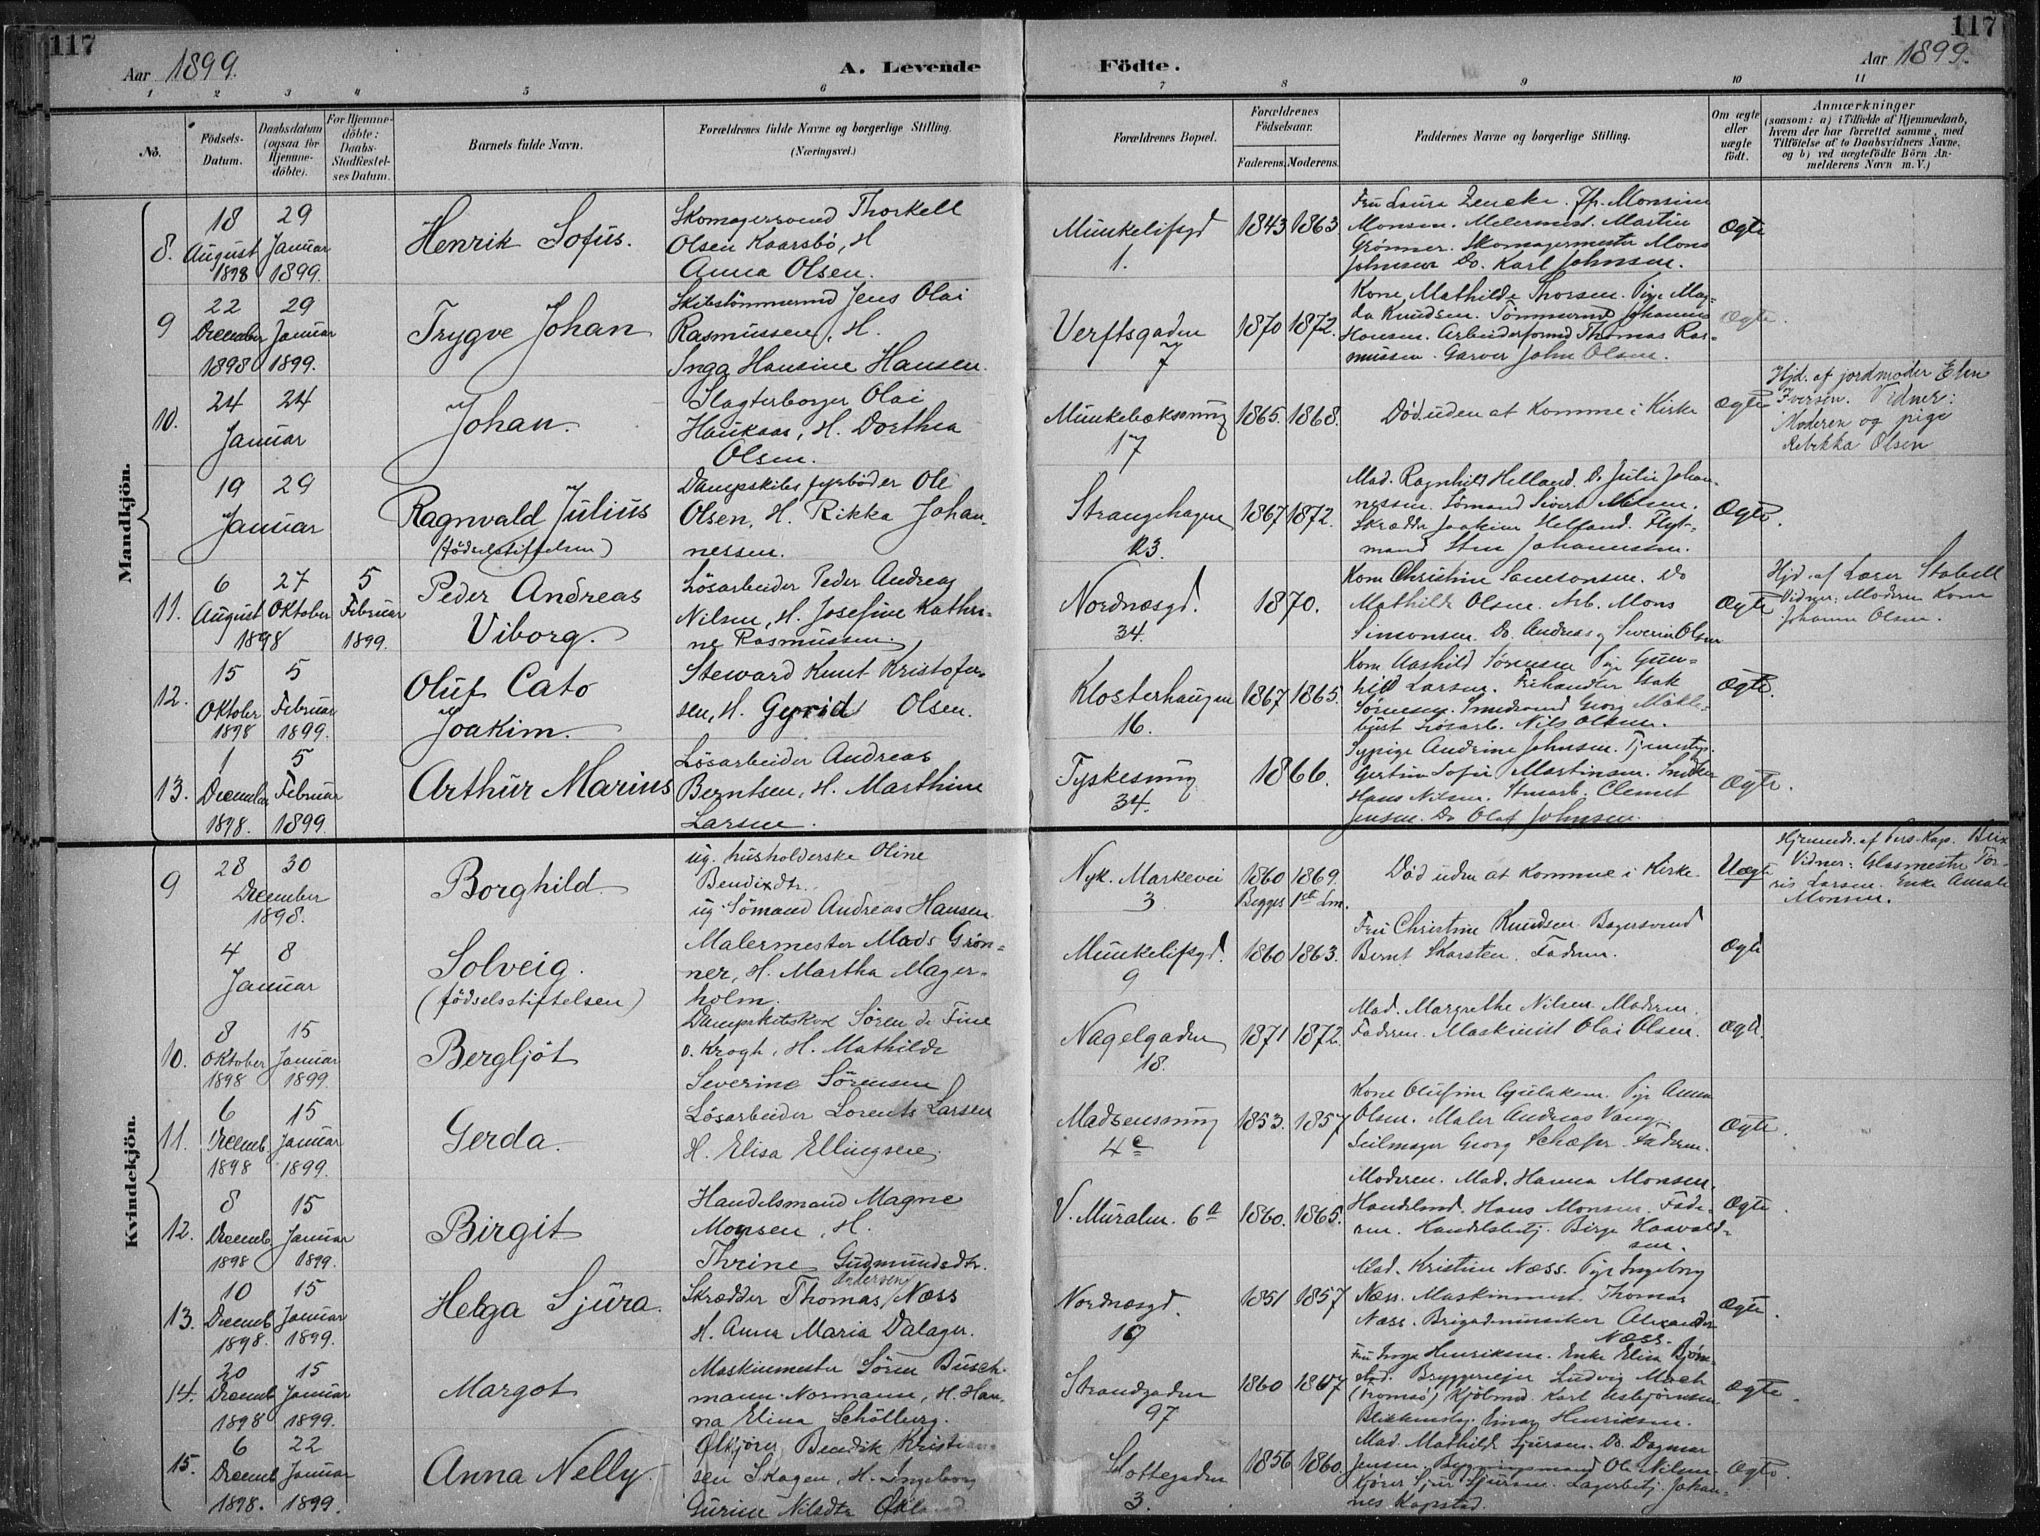 117
Aar 1899.
A. Levende Födte.
Aar 1899.
117
1 2 3 4 5 6 7 8 9 10 11
No.
Födsels-Datum.
Daabsdatum (ogsaa for Hjemme-döbte).
For Hjemme-döbte: Daabs-Stadfæstel-ses Datum.
Barnets fulde Navn.
Forældrenes fulde Navne og borgerlige Stilling. (Næringsvei.)
Forældrenes Bopæl.
Forældrenes Födselsaar.
Faderens. Moderens.
Faddernes Navne og borgerlige Stilling.
Om ægte eller uægte födt.
Anmærkninger
(saasom: a) i Tilfælde af Hjemmedaab,
hvem der har forrettet samme, med
Tilföielse af to Daabsvidners Navne,
og b) ved uægtefödte Börn An-
melderens Navn m. V.)
Mandkjön.
8. 18 August 1898 29 Januar 1899. Henrik Sofus.
Skomagersvend Thorkell
Olsen Kaarsbö, H
Anna Olsen.
Munkelifsgd 1. 1843 1863
Fru Laura Zencke. Jfr. Monsine
Monsen. Malermest. Martin
Grönner. Skomagermester Mons
Johnsen Do. Karl Johnsen.
Ægte
9 22 December 1898 29 Januar 1899. Trygve Johan
Skibstömmermd Jens Olai
Rasmussen, H.
Inga Hansine Hansen.
Verftsgaden 7 1870 1872.
Kone Mathilde Thorsen. Pige Mag-
da Knudsen. Tömmermd Johannes
Hansen. Arbeiderformd Thomas Ras-
mussen. Garver John Olsen.
Ægte.
10. 24 24 Januar Johan.
Slagterborger Olai
Haukaas, H. Dorthea
Olsen.
Munkebæksmug 17 1865. 1868.
Död uden at komme i Kirke
Ægte
Hjd. af jordmoder Elen
Iversen. Vidner:
Moderen og pige
Rebekka Olsen
19 29 Januar Ragnvald Julius
(födselsstiftelsen)
Dampskibs fyrböder Ole
Olsen, H. Rikka Johan-
nessen.
Strangehagen 23. 1867 1872.
Mad. Ragnhild Helland. Do Julie Johan-
nessen. Sömand Sivert Nilsen.
Skrædder Joakim Helland. Flyt-
mand Sten Johannessen.
Ægte.
11. 6 August 27 Oktober 1898 5 Februar 1899.
Peder Andreas
Viborg.
Lösarbeider Peder Andreas
Nilsen, H. Josefine Kathri-
ne Rasmussen.
Nordnæsgd. 34. 1870.
Kone Christine Samsonsen. Do
Mathilde Olsen. Arb. Mons
Simonsen. Do. Andreas og Severin Olsen
Ægte
Hjd. af Læser Stabell
Vidner: Moderen Kone
Johanne Olsen.
12. 15 Oktober 1898 5 Februar 1899.
Oluf Cato
Joakim.
Steward Knut Kristofer-
sen, H. Gyrid Olsen.
Klosterhaugen 16. 1867 1865.
Kone Aashild Sörensen Pige Gun-
hild Larsen. Frihandler Isak
Sörensen. Smedsvend Georg
Lösarb. Nils Olsen.
Ægte.
13. 1 December 1898. 5 Februar 1899. Arthur Marius
Lösarbeider Andreas
Berntsen, H. Marthine
Larsen.
Tyskesmug 34. 1866.
Sypige Andrine Johnsen. Tjenestep.
Gertine Sofie Martinsen. Snedker
Hans Nilsen. Stuearb. Clemet
Jensen. Do Olaf Johnsen.
Ægte.
Kvindekjön.
9 28 30 December 1898. Borghild
ug. husholderske Oline
Bendixdtr.
ug. Sömand Andreas Hansen.
Nyk. Markevei 3 1860 1869.
Begges 1ste Lm.
Död uden at komme i Kirke.
Uægte
Hjemmedr. af Pers. Kap. Brix
Vidner: Glasmester Tör-
ris Larsen. Enke Amalie
Monsen.
4 8 Januar Solveig.
(födselsstiftelsen)
Malermester Mads Grön-
ner, H. Martha Mager-
holm.
Munkelifsgd. 9 1860 1863.
Fru Christine Knudsen. Bagersvend
Bernt Skarsten. Faderen.
Ægte
10. 8 Oktober 1898 15 Januar 1899. Bergljót
Dampskibskok Sören de Fine
v. Krogh, H. Mathilde
Severine Sörensen
Nagelgaden 18. 1871 1872.
Mad. Margrethe Nilsen. Moderen.
Faderen. Maskinist Olai Olsen.
Ægte.
11. 6 Decemb 1898 15 Januar 1899. Gerda.
Lösarbeider Lorents Larsen
H. Elisa Ellingsen.
Madsensmug 4c 1853. 1857
Kone Olufine Gulaksen. Pige Anna
Olsen. Maler Andreas Vang
Seilmager Georg Schæfer. Faderen.
Ægte.
12. 8 Decemb 1898 15 Januar 1899. Birgit
Handelsmand Magne
Monsen, H.
Thrine Gudmundsdtr.
V. Muralm. 6a 1860. 1865.
Moderen. Mad. Hanna Monsen.
Handelsmd. Hans Monsen. Fade-
ren. Handelsbetj. Birge Haavald-
sen.
Ægte.
13. 10 Decemb 1898. 15 Januar 1899. Helga Sjura.
Andersen
Skrædder Thomas Næss
H. Anna Maria Dalager.
Nordnæsgd. 19 1851 1857
Mad. Kristine Næss. Pige Ingeborg
Næss. Maskinmest. Thomas
Næss. Brigademusiker Alexander
Næss.
Ægte.
14. 20 Decemb 1898 15 Januar 1899. Margot
Maskinmester Sören Busch-
mann Normann, H. Han-
na Elina Schölberg.
Strandgaden 97 1860 1867
Fru Inga Henriksen. Enke Elisa Bjön-
stad. Bryggerieier Ludvig Mack
(Tromsö) Kjöbmd Karl Asbjörnsen
Blikkenslag. Einar Henriksen.
Ægte.
15. 6 Decemb 1898. 22 Januar 1899. Anna Nelly.
Ölkjörer Bendik Kristian-
sen Skagen, H. Ingeborg
Gurine Nilsdtr
Slottegaden 3. 1856 1860.
Mad. Mathilde Sjursen. Do. Dagmar
Jensen. Bygningsmand Ole Nilsen.
Kjörer Sjur Sjursen. Lagerbetj. Johan-
nes Kapstad.
Ægte.